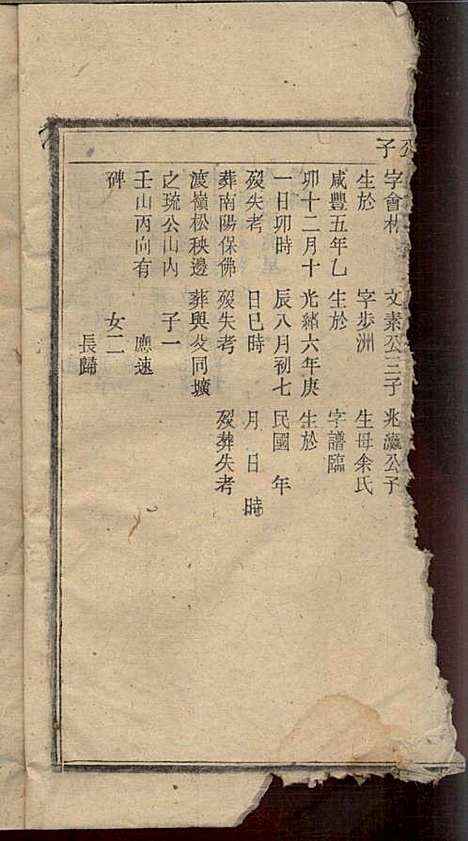 公子
字會林
生於
咸豐五年乙
卯十二月十
一日卯時
歿失考
葬南陽保佛
渡嶺松秧邊
之琉公山內
壬山丙向有
碑
文素公三子
字步洲
生於
光緒六年庚
辰八月初七
日巳時
歿失考
葬與父同壙
子一
應速
女二
長歸
兆瀛公子
生母余氏
字譜臨
生於
民國 年
月 日 時
歿葬失考